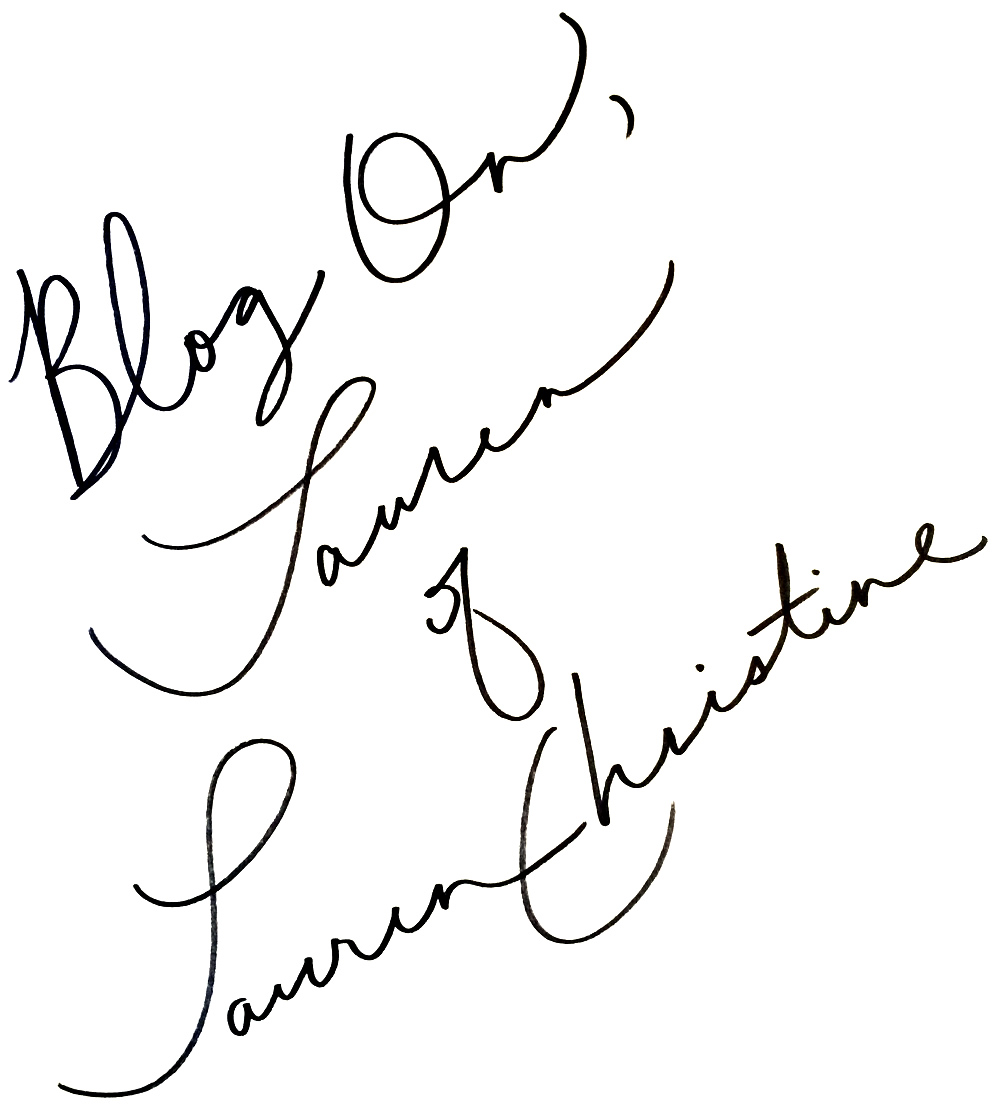 Blog On,
Lauren
of
Lauren Christine